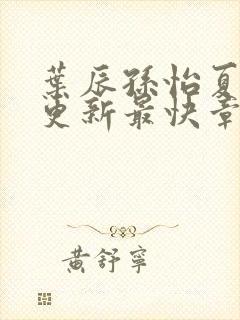 葉辰孫怡夏
更新最快章
黃舒寧